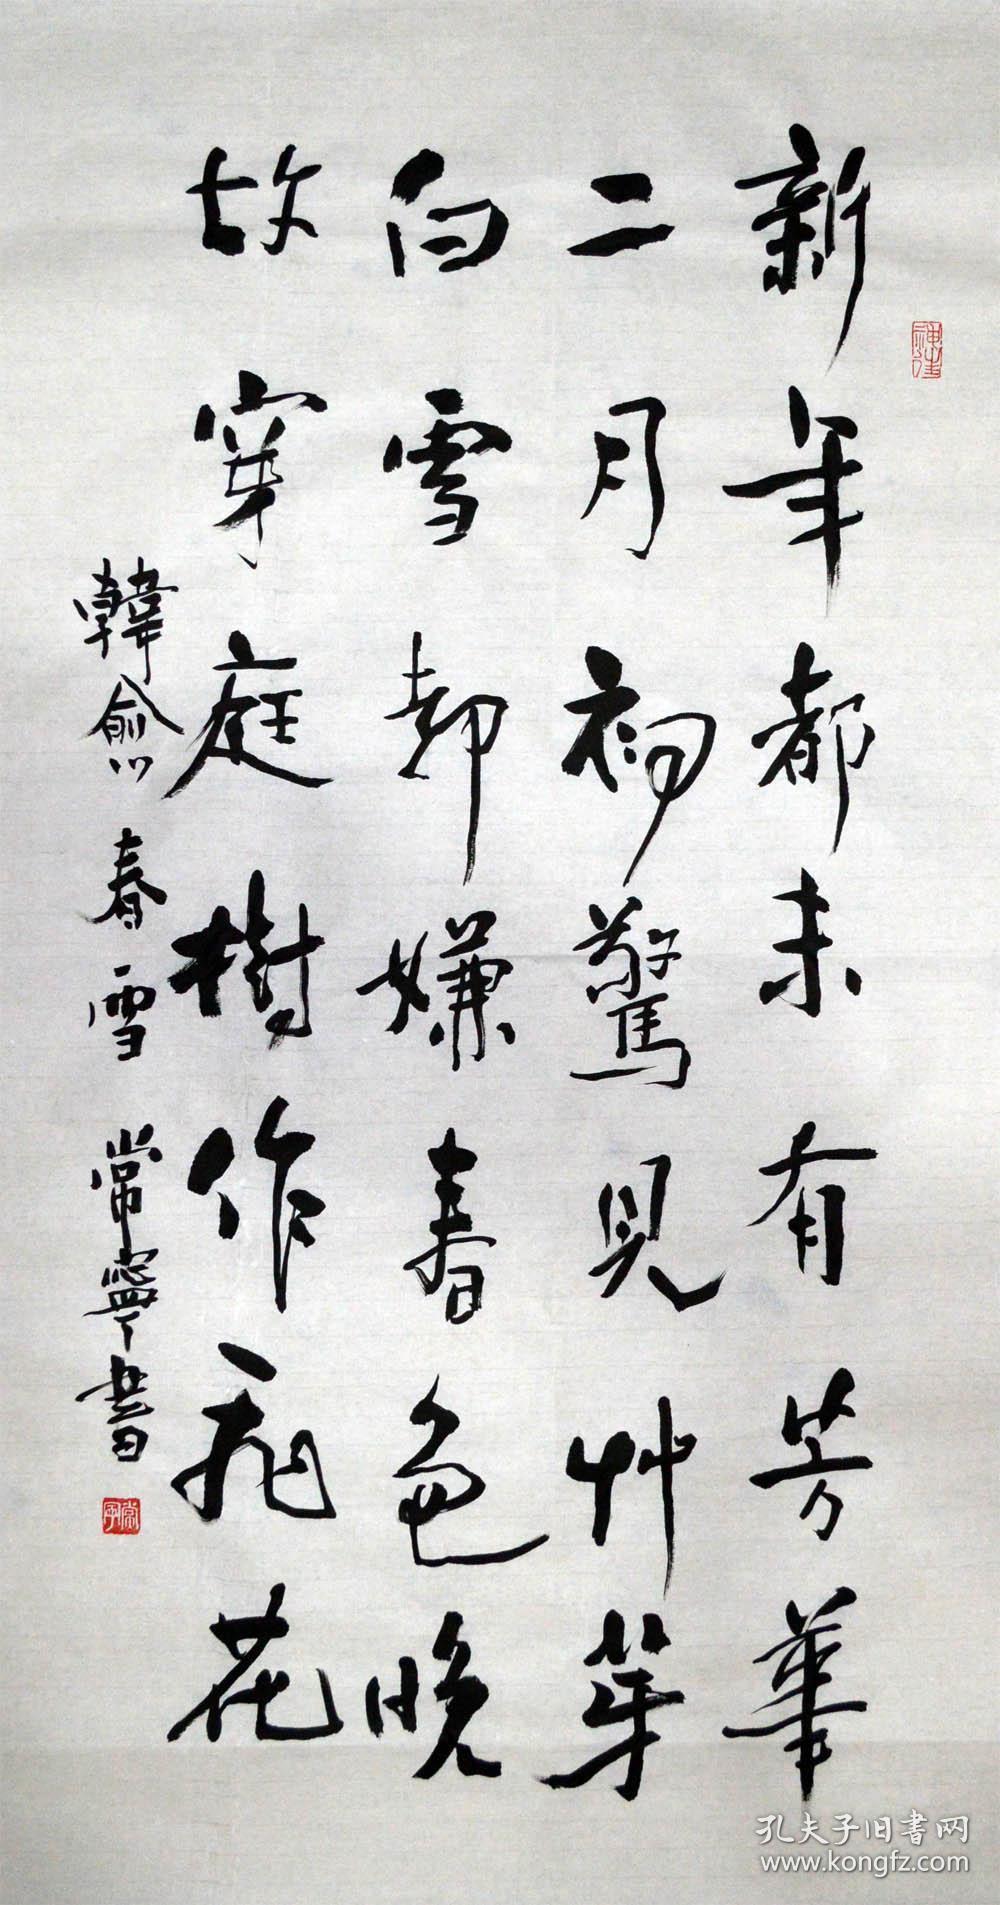 新年都未有芳華
二月初驚見艸芽
白雪却嫌春色晚
故穿庭樹作飛花
韓愈 春雪 常寧書
孔夫子旧書网
www.kongfz.com